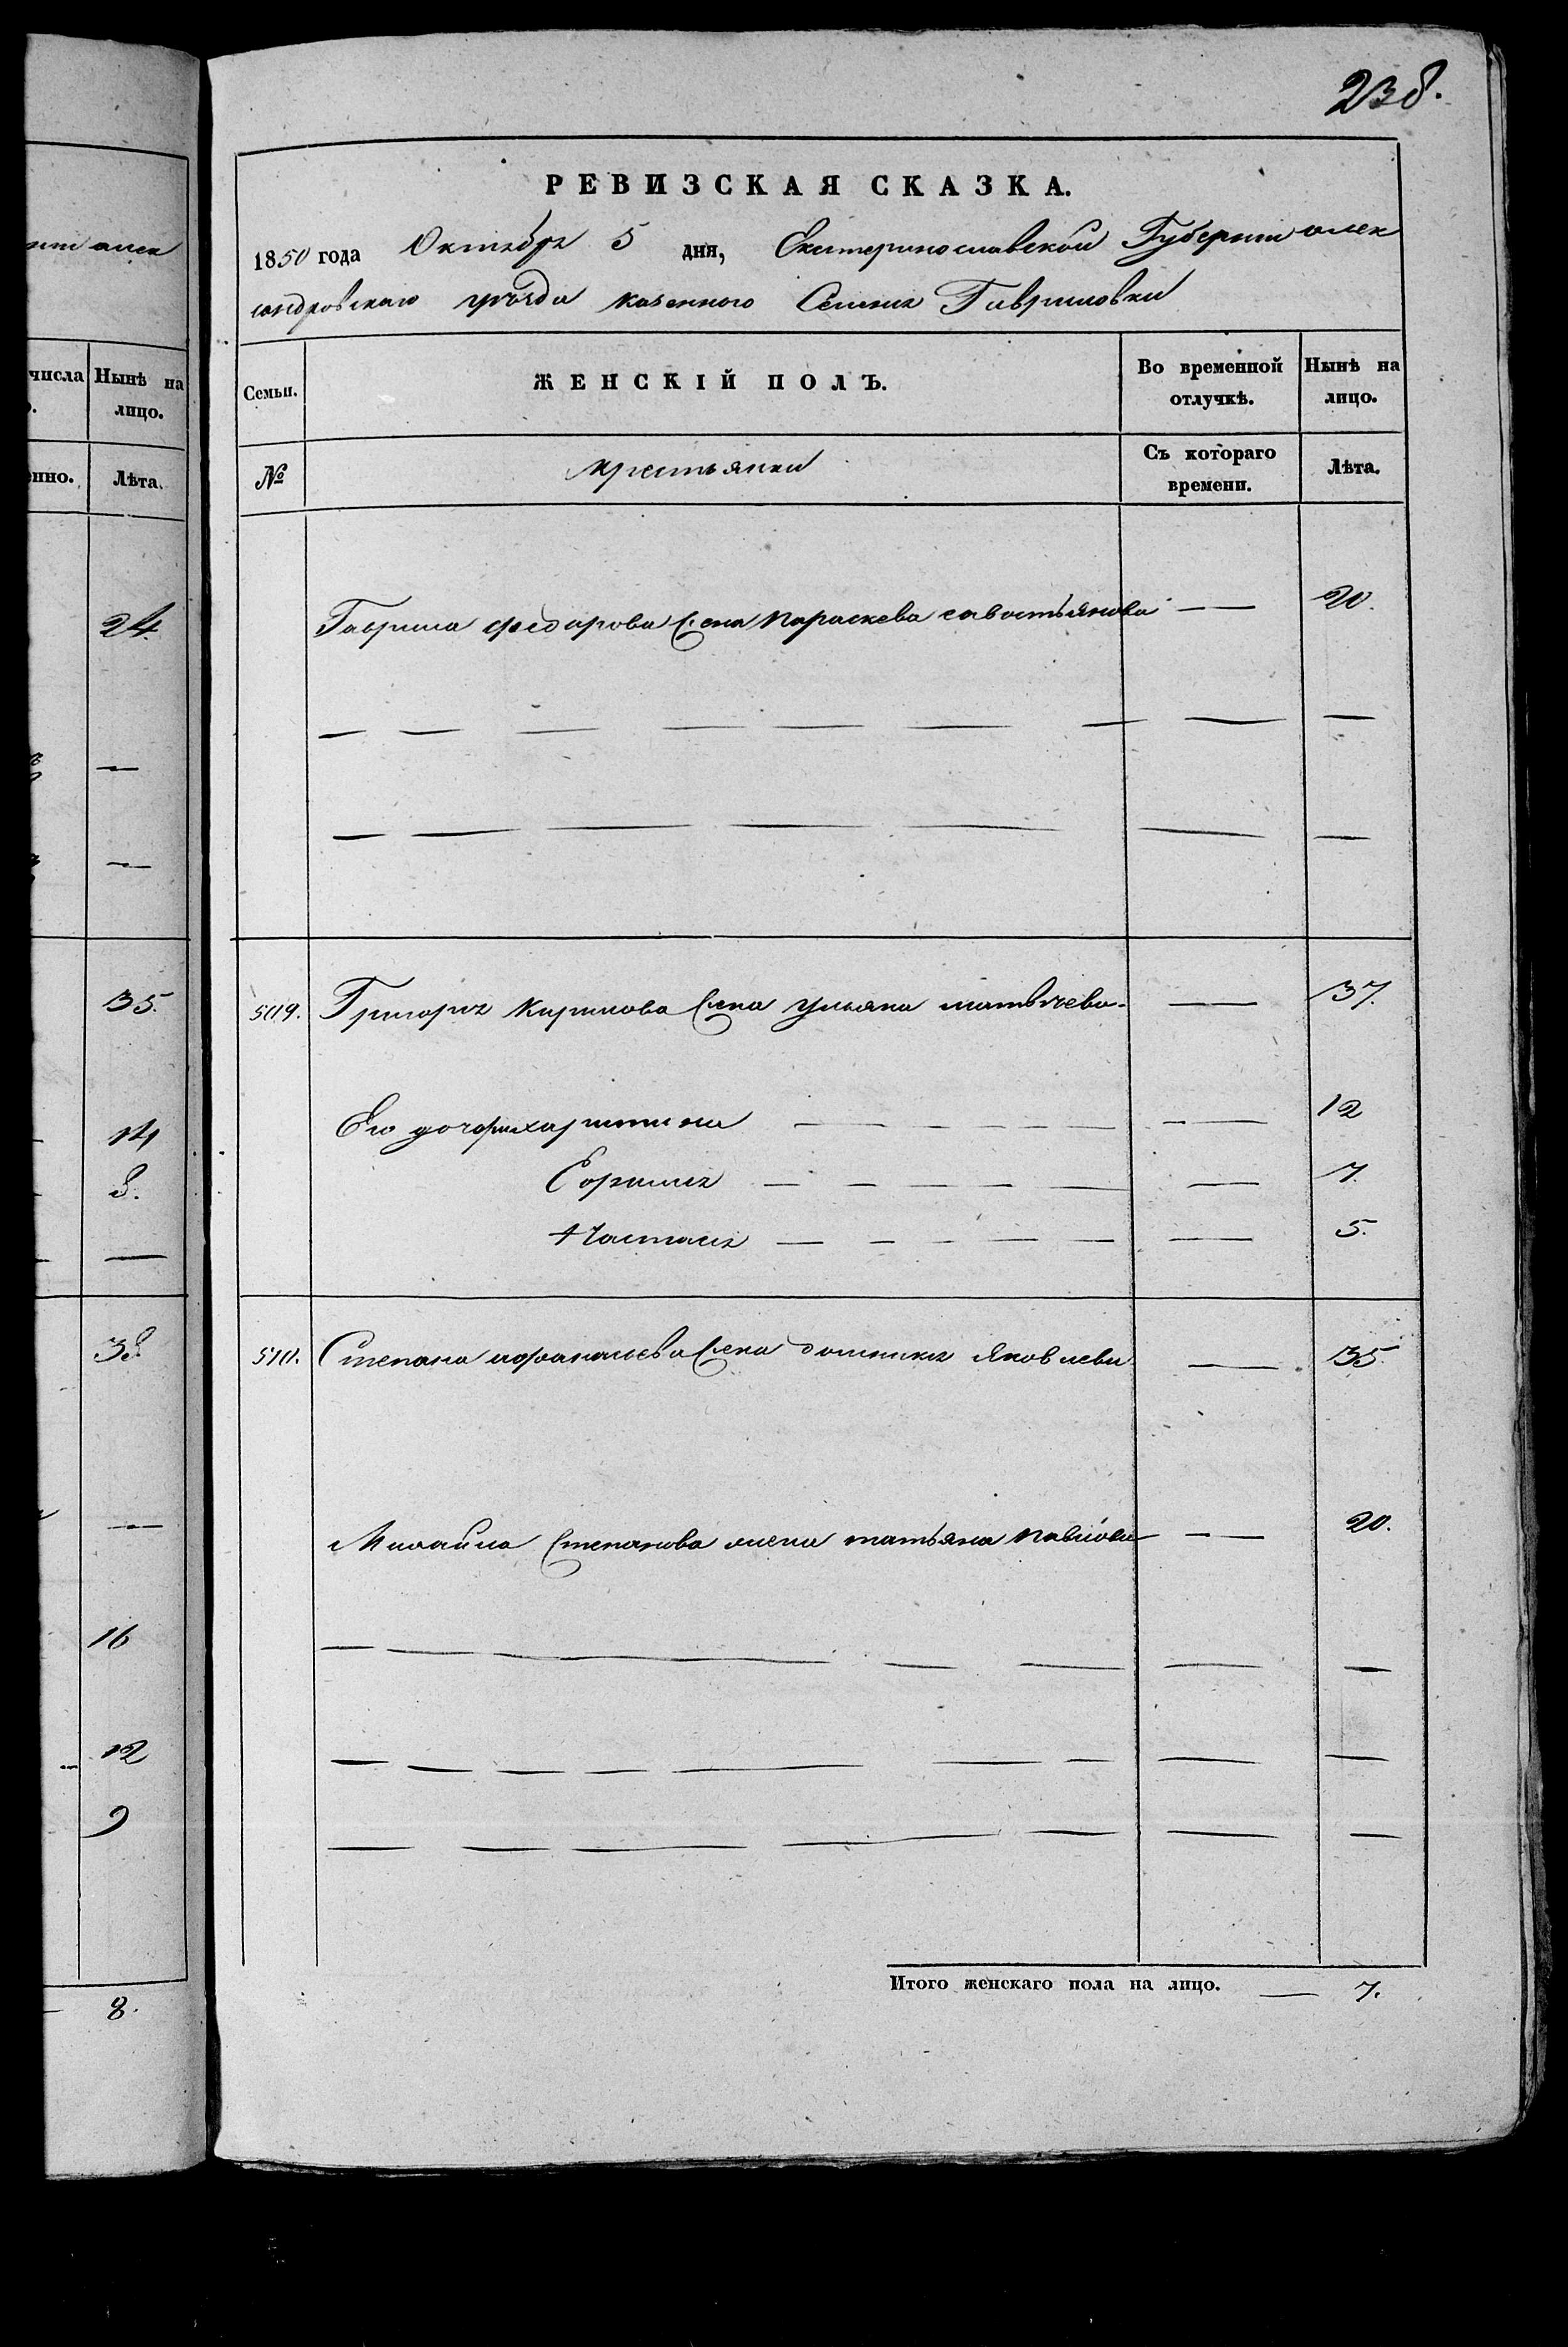 238.
РЕВИЗСКАЯ СКАЗКА.
1850 года Октября 5 дня, Екатеринославской Губерніи алек
сандровскаго уѣзда казенного Селения Гавриловки
Семьи.
ЖЕНСКІЙ ПОЛЪ.
Во временной отлучкѣ.
Нынѣ на лицо.
№
крестьянки
Съ котораго времени.
Лѣта.
Гаврила федорова жена параскева савостьянова — 20.
509. Григория Кирилова жена ульяна матвѣева — 37.
Его дочери харитина — 12
— 7.
Настасия — 5.
510. Степана афанасьева жена домникия яковлева — 35
Михайла Степанова жена татьяна павлова — 20.
Итого женскаго пола на лицо. — 7.
алек
числа
Нынѣ на лицо.
Лѣта.
24.
—
—
35.
14
8.
—
38
—
16
12
9
8.